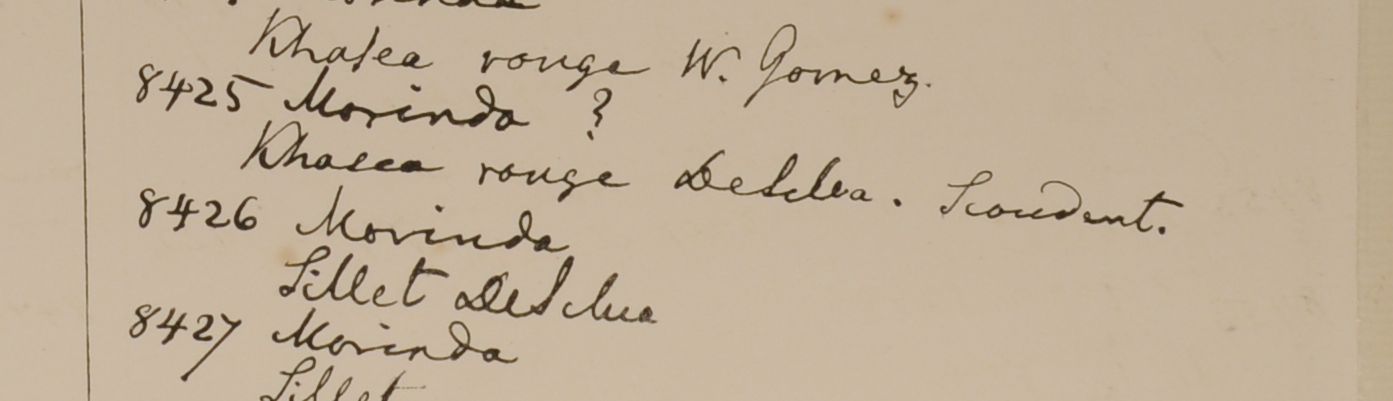 Morinda
Khasea rouge W. Gomez.
8425 Morinda ?
Khasea rouge DeSilva. Scandent.
8426 Morinda
Sillet DeSilva
8427 Morinda
Sillet